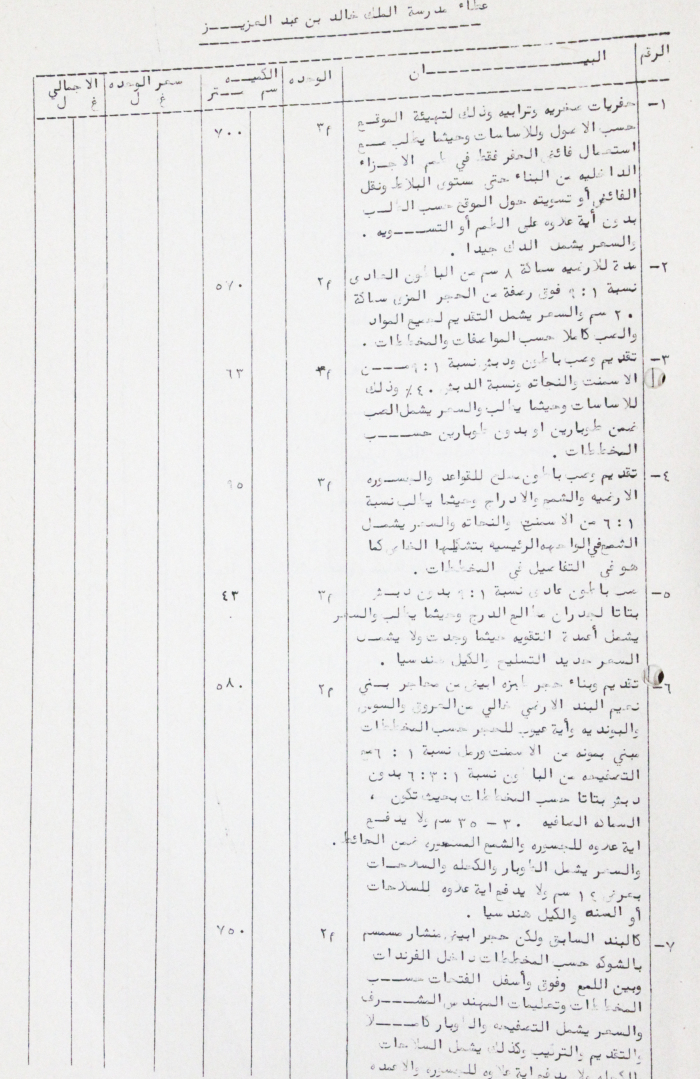 عطاء مدرسة الملك خالد بن عبد العزيـــز
الرقم البيــــــــان الوحده الكميـــه سعر الوحده الاجمالي
سم ــتر غ ل غ ل
١- حفريات صخريه وترابيه وذلك لتهيئة الموقـع م٣ ٧٠٠
حسب الاصول وللاساسات وحيثما يطلب مـــع
استعمال فائض الحفر فقط في طمم الاجـزاء
الداخليه من البناء حتى مستوى البلاط ونقل
الفائض أو تسويته حول الموقع حسب الطلــب
بدون أية علاوه على الطمم أو التســـويه .
والسعر يشمل الدك جيدا .
٢- مدة للارضيه سماكة ٨ سم من الباطون العادى م٢ ٥٧٠
نسبة ١ : ٩ فوق رصفة من الحجر المزى سماكة
٢٠ سم والسعر يشمل التقديم لجميع المواد
والصب كاملا حسب المواصفات والمخططات .
٣- تقديم وصب باطون ودبش نسبة ١ : ٩ مــــن م٣ ٦٣
الاسمنت والنحاته ونسبة الدبش ٤٠٪ وذلك
للاساسات وحيثما يطلب والسعر يشمل الصب
ضمن طوبارين او بدون طوبارين حســـب
المخططات .
٤- تقديم وصب باطون مسلح للقواعد والجســوره م٣ ٩٥
الارضيه والشمع والادراج وحيثما يطلب نسبة
١ : ٦ من الاسمنت والنحاته والسعر يشمــل
الشمع في الواجهه الرئيسيه بتشكيلها الخاص كما
هو في التفاصيل في المخططات .
٥- صب باطون عادى نسبة ١ : ٩ بدون دبــش م٣ ٤٣
بتاتا لجدران مطالع الدرج وحيثما يطلب والسعر
يشمل أعمدة التقويه حيثما وجدت ولا يشمــل
السعر حديد التسليح والكيل هندسيا .
٦- تقديم وبناء حجر طبزه ابيض من محاجر بــني م٢ ٥٨٠
نعيم البند الارضي خالي من العروق والسوس
والبونديه وأية عيوب للحجر حسب المخططات
مبني بمونه من الاسمنت ورمل نسبة ١ : ٦ مع
التصفيحه من الباطون نسبة ١ : ٣ : ٦ بدون
دبش بتاتا حسب المخططات بحيث تكون ،
السماكه الصافيه ٣٠ - ٣٥ سم ولا يدفــع
اية علاوه للجسوره والشمع المسحوره ضمن الحائط .
والسعر يشمل الطوبار والكحله والسلاحــات
بعرض ١٢ سم ولا يدفع اية علاوه للسلاحات
أو السنه والكيل هندسيا .
٧- كالبند السابق ولكن حجر ابيض منشار مسمسم م٢ ٧٥٠
بالشوكه حسب المخططات داخل الفرندات
وبين اللمع وفوق وأسفل الفتحات حســـب
المخططات وتعليمات المهندس المشــرف
والسعر يشمل التصفيحه والطوبار كامـــلا
والتقديم والترتيب وكذلك يشمل السلاحات
ولا يدفع اية علاوه للجسوره والاعمده